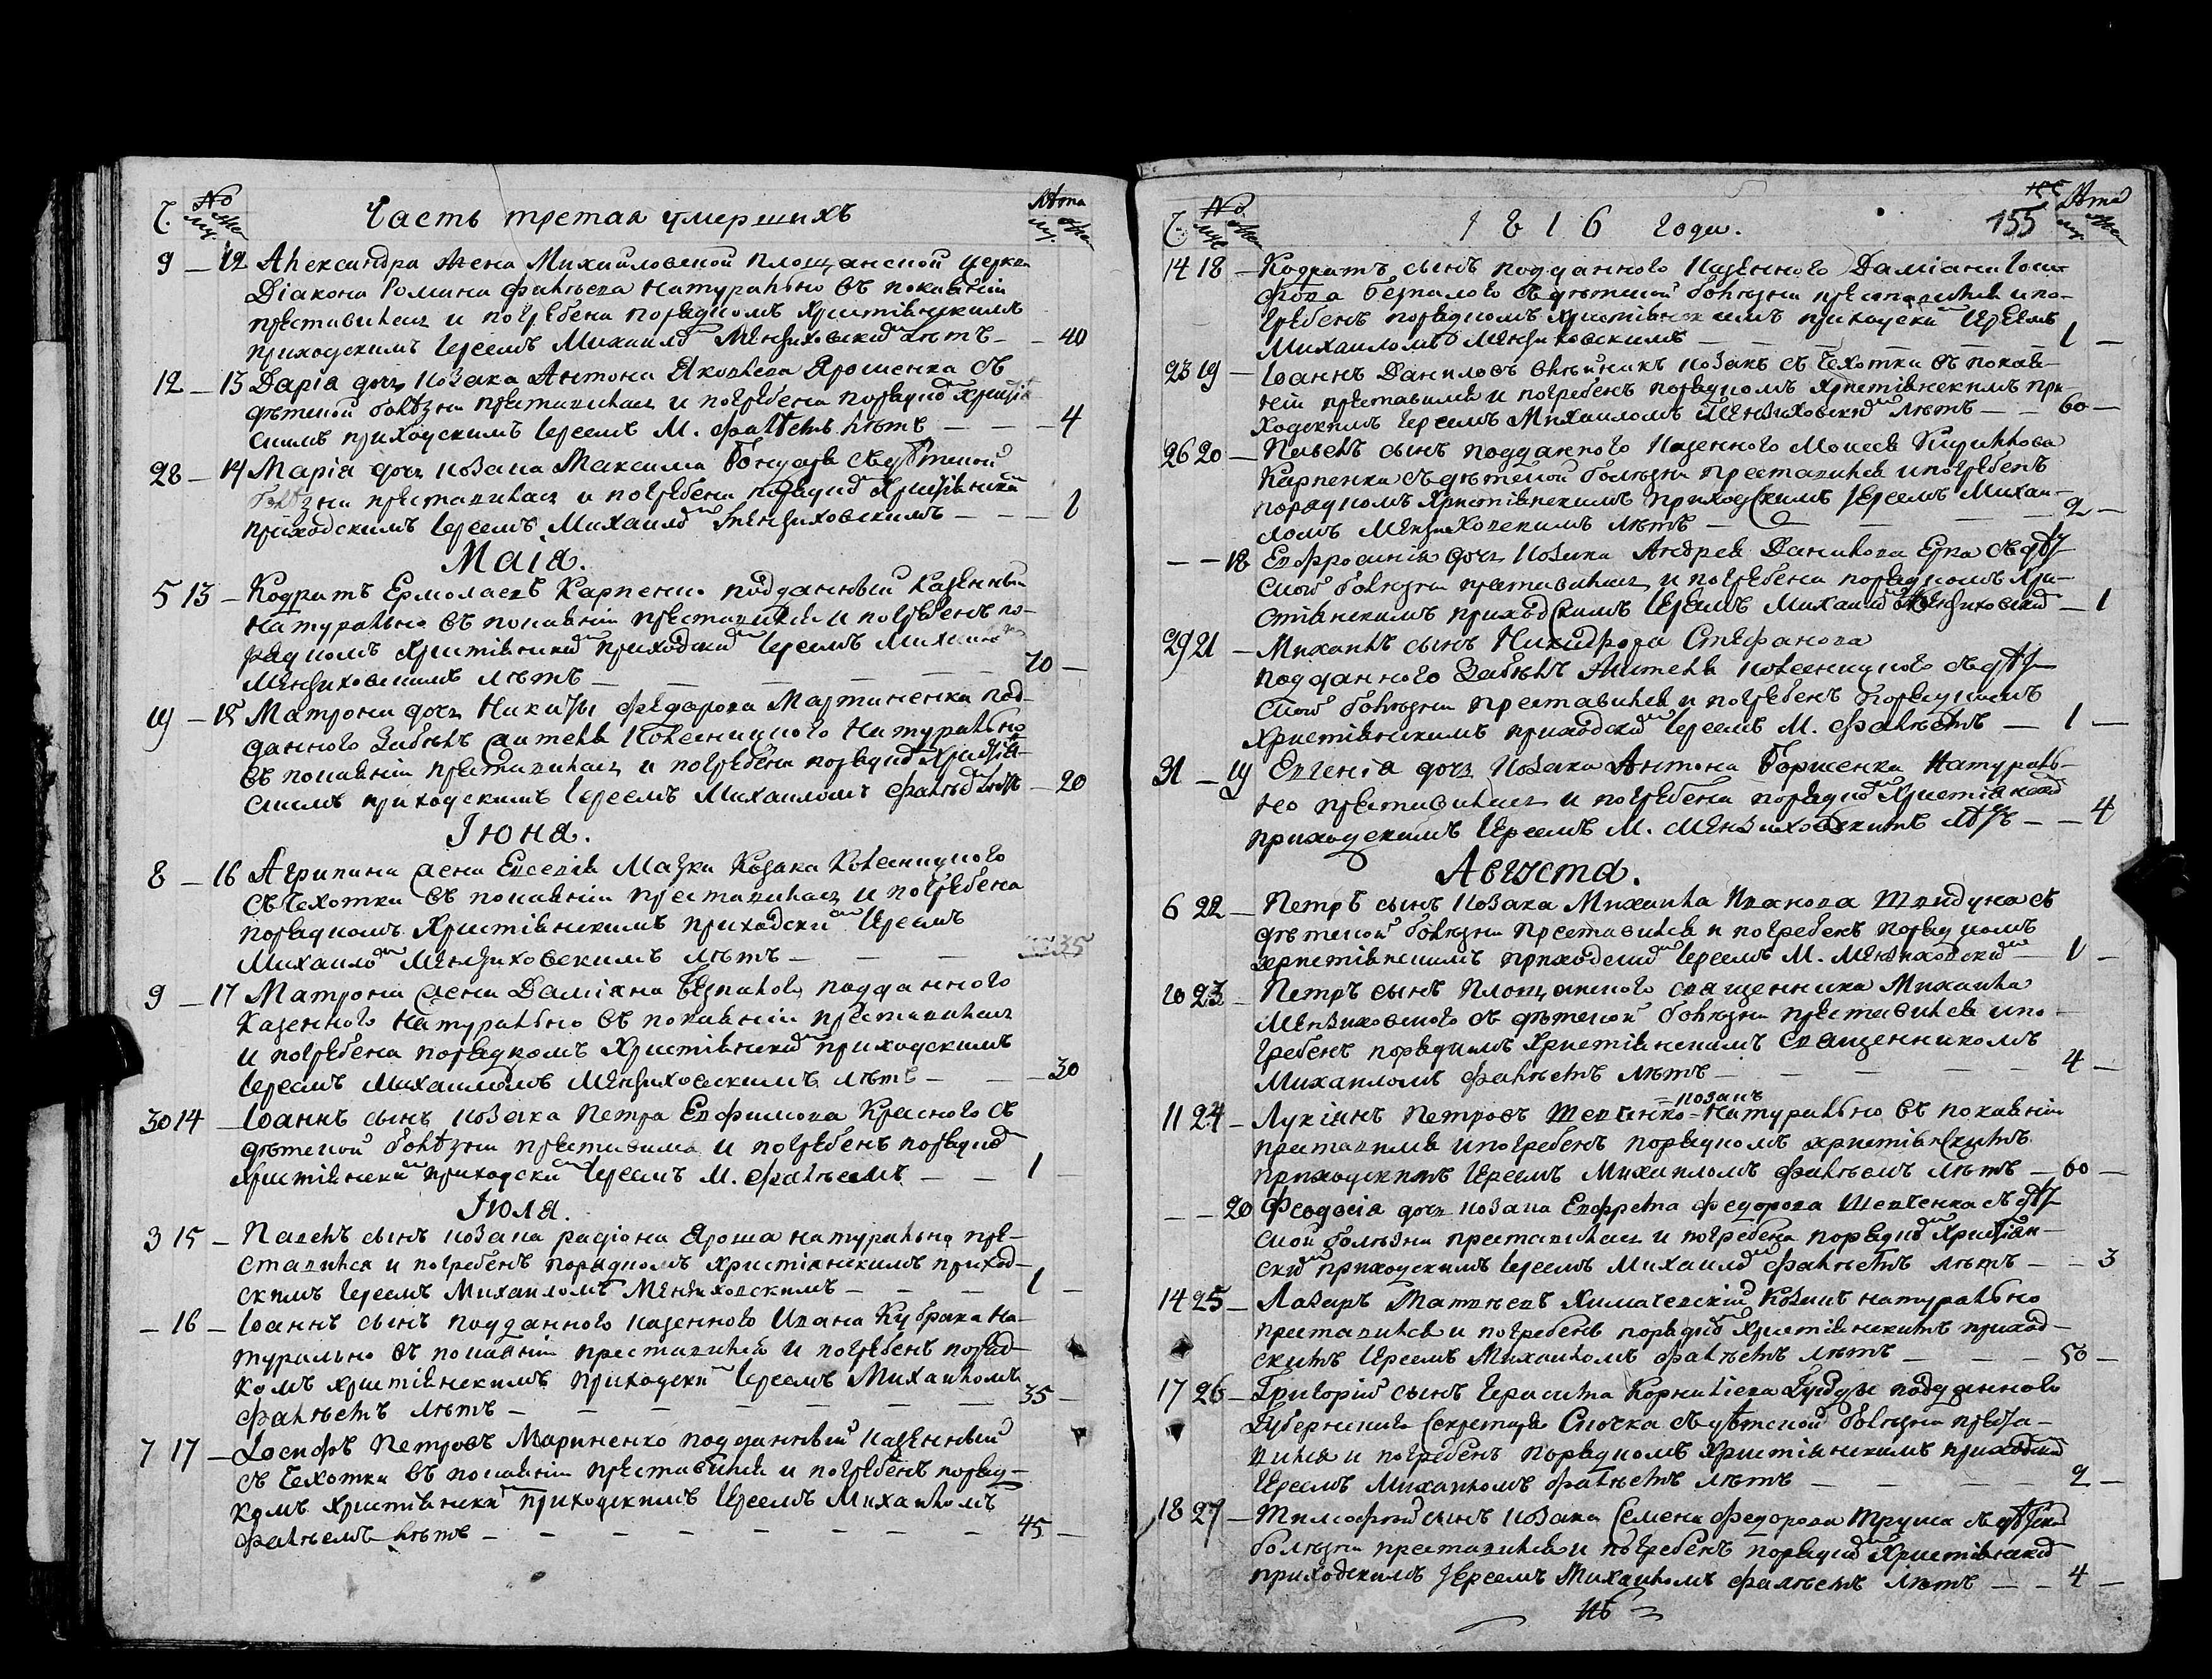 Ч. № муж. жен. Часть третая умершихъ Лѣта муж. жен.
9 — 12 Александра жена Михайловской площанской церкви
Діакона Романа Фалѣева натурально въ покаяніи
преставилась и погребена порядкомъ христіянскимъ
приходскимъ Іереемъ Михаиломъ Мензиховскимъ лѣтъ — 40
12 — 13 Дарія дочь козака Антона Яковлева Ярошенка съ
дѣтской болѣзни преставилась и погребена порядкомъ христіян
скимъ приходскимъ Іереемъ М. Фалѣемъ лѣтъ — — — 4
28 — 14 Марія дочь козака Максима Бондаря съ дѣтской
болѣзни преставилась и погребена порядкомъ христіянскимъ
приходскимъ Іереемъ Михаиломъ Мензиховскимъ — — — 1
Маія.
5 13 — Кодратъ Ермолаевъ Карпенко подданный казенный
натурально въ покаяніи преставился и погребенъ по-
рядкомъ христіянскимъ приходскимъ Іереемъ Михаиломъ
Мензиховскимъ лѣтъ — — — — 70 —
19 — 15 Матрона дочь Никиты Федорова Мартиненка под-
данного Забѣлъ жителя Колесницкого натурально
въ покаяніи преставилась и погребена порядкомъ христіян-
скимъ приходскимъ Іереемъ Михаиломъ Фалѣемъ лѣтъ — 20
Іюня.
8 — 16 Агрипина жена Евсевія Мазки козака Колесницкого
съ чехотки въ покаяніи преставилась и погребена
порядкомъ христіянскимъ приходскимъ Іереемъ
Михаиломъ Мензиховскимъ лѣтъ — — — 35
9 — 17 Матрона жена Даміана Безпалого подданного
казенного натурально въ покаяніи преставилась
и погребена порядкомъ христіянскимъ приходскимъ
Іереемъ Михаиломъ Мензиховскимъ лѣтъ — — — 30
30 14 — Іоаннъ сынъ козака Петра Евфимова Красного съ
дѣтской болѣзни преставился и погребенъ порядкомъ
христіянскимъ приходскимъ Іереемъ М. Фалѣемъ — — 1 —
Іюля.
3 15 — Павелъ сынъ козака Радіона Яроша натурально пре-
ставился и погребенъ порядкомъ христіянскимъ приход-
скимъ Іереемъ Михаиломъ Мензиховскимъ — — — 1 —
— 16 — Іоаннъ сынъ подданного казенного Ивана Кубрака на-
турально въ покаяніи преставился и погребенъ поряд-
комъ христіянскимъ приходскимъ Іереемъ Михаиломъ
Фалѣемъ лѣтъ — — — — — — — 35 —
7 17 — Іосифъ Петровъ Мариненко подданный казенный
съ чехотки въ покаяніи преставился и погребенъ поряд-
комъ христіянскимъ приходскимъ Іереемъ Михаиломъ
Фалѣемъ лѣтъ — — — — — — — — 45 —
Ч. № муж. жен. 1816 года. 155 Лѣта муж. жен.
14 18 — Кодратъ сынъ подданного казенного Даміана Іоси-
фова Безпалого съ дѣтской болѣзни преставился и по-
гребенъ порядкомъ христіянскимъ приходскимъ Іереемъ
Михаиломъ Мензиховскимъ — — — — — 1 —
23 19 — Іоаннъ Даниловъ Олѣйникъ козакъ съ чехотки въ покая-
ніи преставился и погребенъ порядкомъ христіянскимъ при-
ходскимъ Іереемъ Михаиломъ Мензиховскимъ лѣтъ — — 60 —
26 20 — Павелъ сынъ подданного казенного Моисея Кирилова
Карпенка съ дѣтской болѣзни преставился и погребенъ
порядкомъ христіянскимъ приходскимъ Іереемъ Михаи-
ломъ Мензиховскимъ лѣтъ — — — — 2 —
— — 18 Евфросинія дочь козака Андрея Данилова съ дѣт
ской болѣзни преставилась и погребена порядкомъ хри-
стіянскимъ приходскимъ Іереемъ Михаиломъ Мензиховскимъ — 1
29 21 — Михаилъ сынъ Никифора Стефанова
подданного Забѣлъ жителя Колесницкого съ дѣт-
ской болѣзни преставился и погребенъ порядкомъ
христіянскимъ приходскимъ Іереемъ М. Фалѣемъ — 1 —
31 — 19 Евгенія дочь козака Антона Борисенка натураль-
но преставилась и погребена порядкомъ христіянскимъ
приходскимъ Іереемъ М. Мензиховскимъ лѣтъ — — 4
Августа.
6 22 — Петръ сынъ козака Михаила Иванова съ
дѣтской болѣзни преставился и погребенъ порядкомъ
христіянскимъ приходскимъ Іереемъ М. Мензиховскимъ — 1 —
10 23 — Петръ сынъ площанского священника Михаила
Мензиховского съ дѣтской болѣзни преставился и по-
гребенъ порядкомъ христіянскимъ священникомъ
Михаиломъ Фалѣемъ лѣтъ — — — — — 4 —
= козакъ
11 24 — Лукіянъ Петровъ Шевченко = натурально въ покаяніи
преставился и погребенъ порядкомъ христіянскимъ
приходскимъ Іереемъ Михаиломъ Фалѣемъ лѣтъ — 60 —
— — 20 Феодосія дочь козака Евфрема Федорова Шевченка съ дѣт
ской болѣзни преставилась и погребена порядкомъ христіян-
скимъ приходскимъ Іереемъ Михаиломъ Фалѣемъ лѣтъ — — 3
14 25 — Лазаръ Матвѣевъ Химачевскій козакъ натурально
преставился и погребенъ порядкомъ христіянскимъ приход-
скимъ Іереемъ Михаиломъ Фалѣемъ лѣтъ — — — 50 —
17 26 — Григорій сынъ Герасима Корниліева подданного
Губернского Секретаря Сночка съ дѣтской болѣзни преста-
вился и погребенъ порядкомъ христіянскимъ приходскимъ
Іереемъ Михаиломъ Фалѣемъ лѣтъ — — — — 2 —
18 27 — Тимофей сынъ козака Семена Федорова Труша съ дѣтской
болѣзни преставился и погребенъ порядкомъ христіянскимъ
приходскимъ Іереемъ Михаиломъ Фалѣемъ лѣтъ — — 4 —